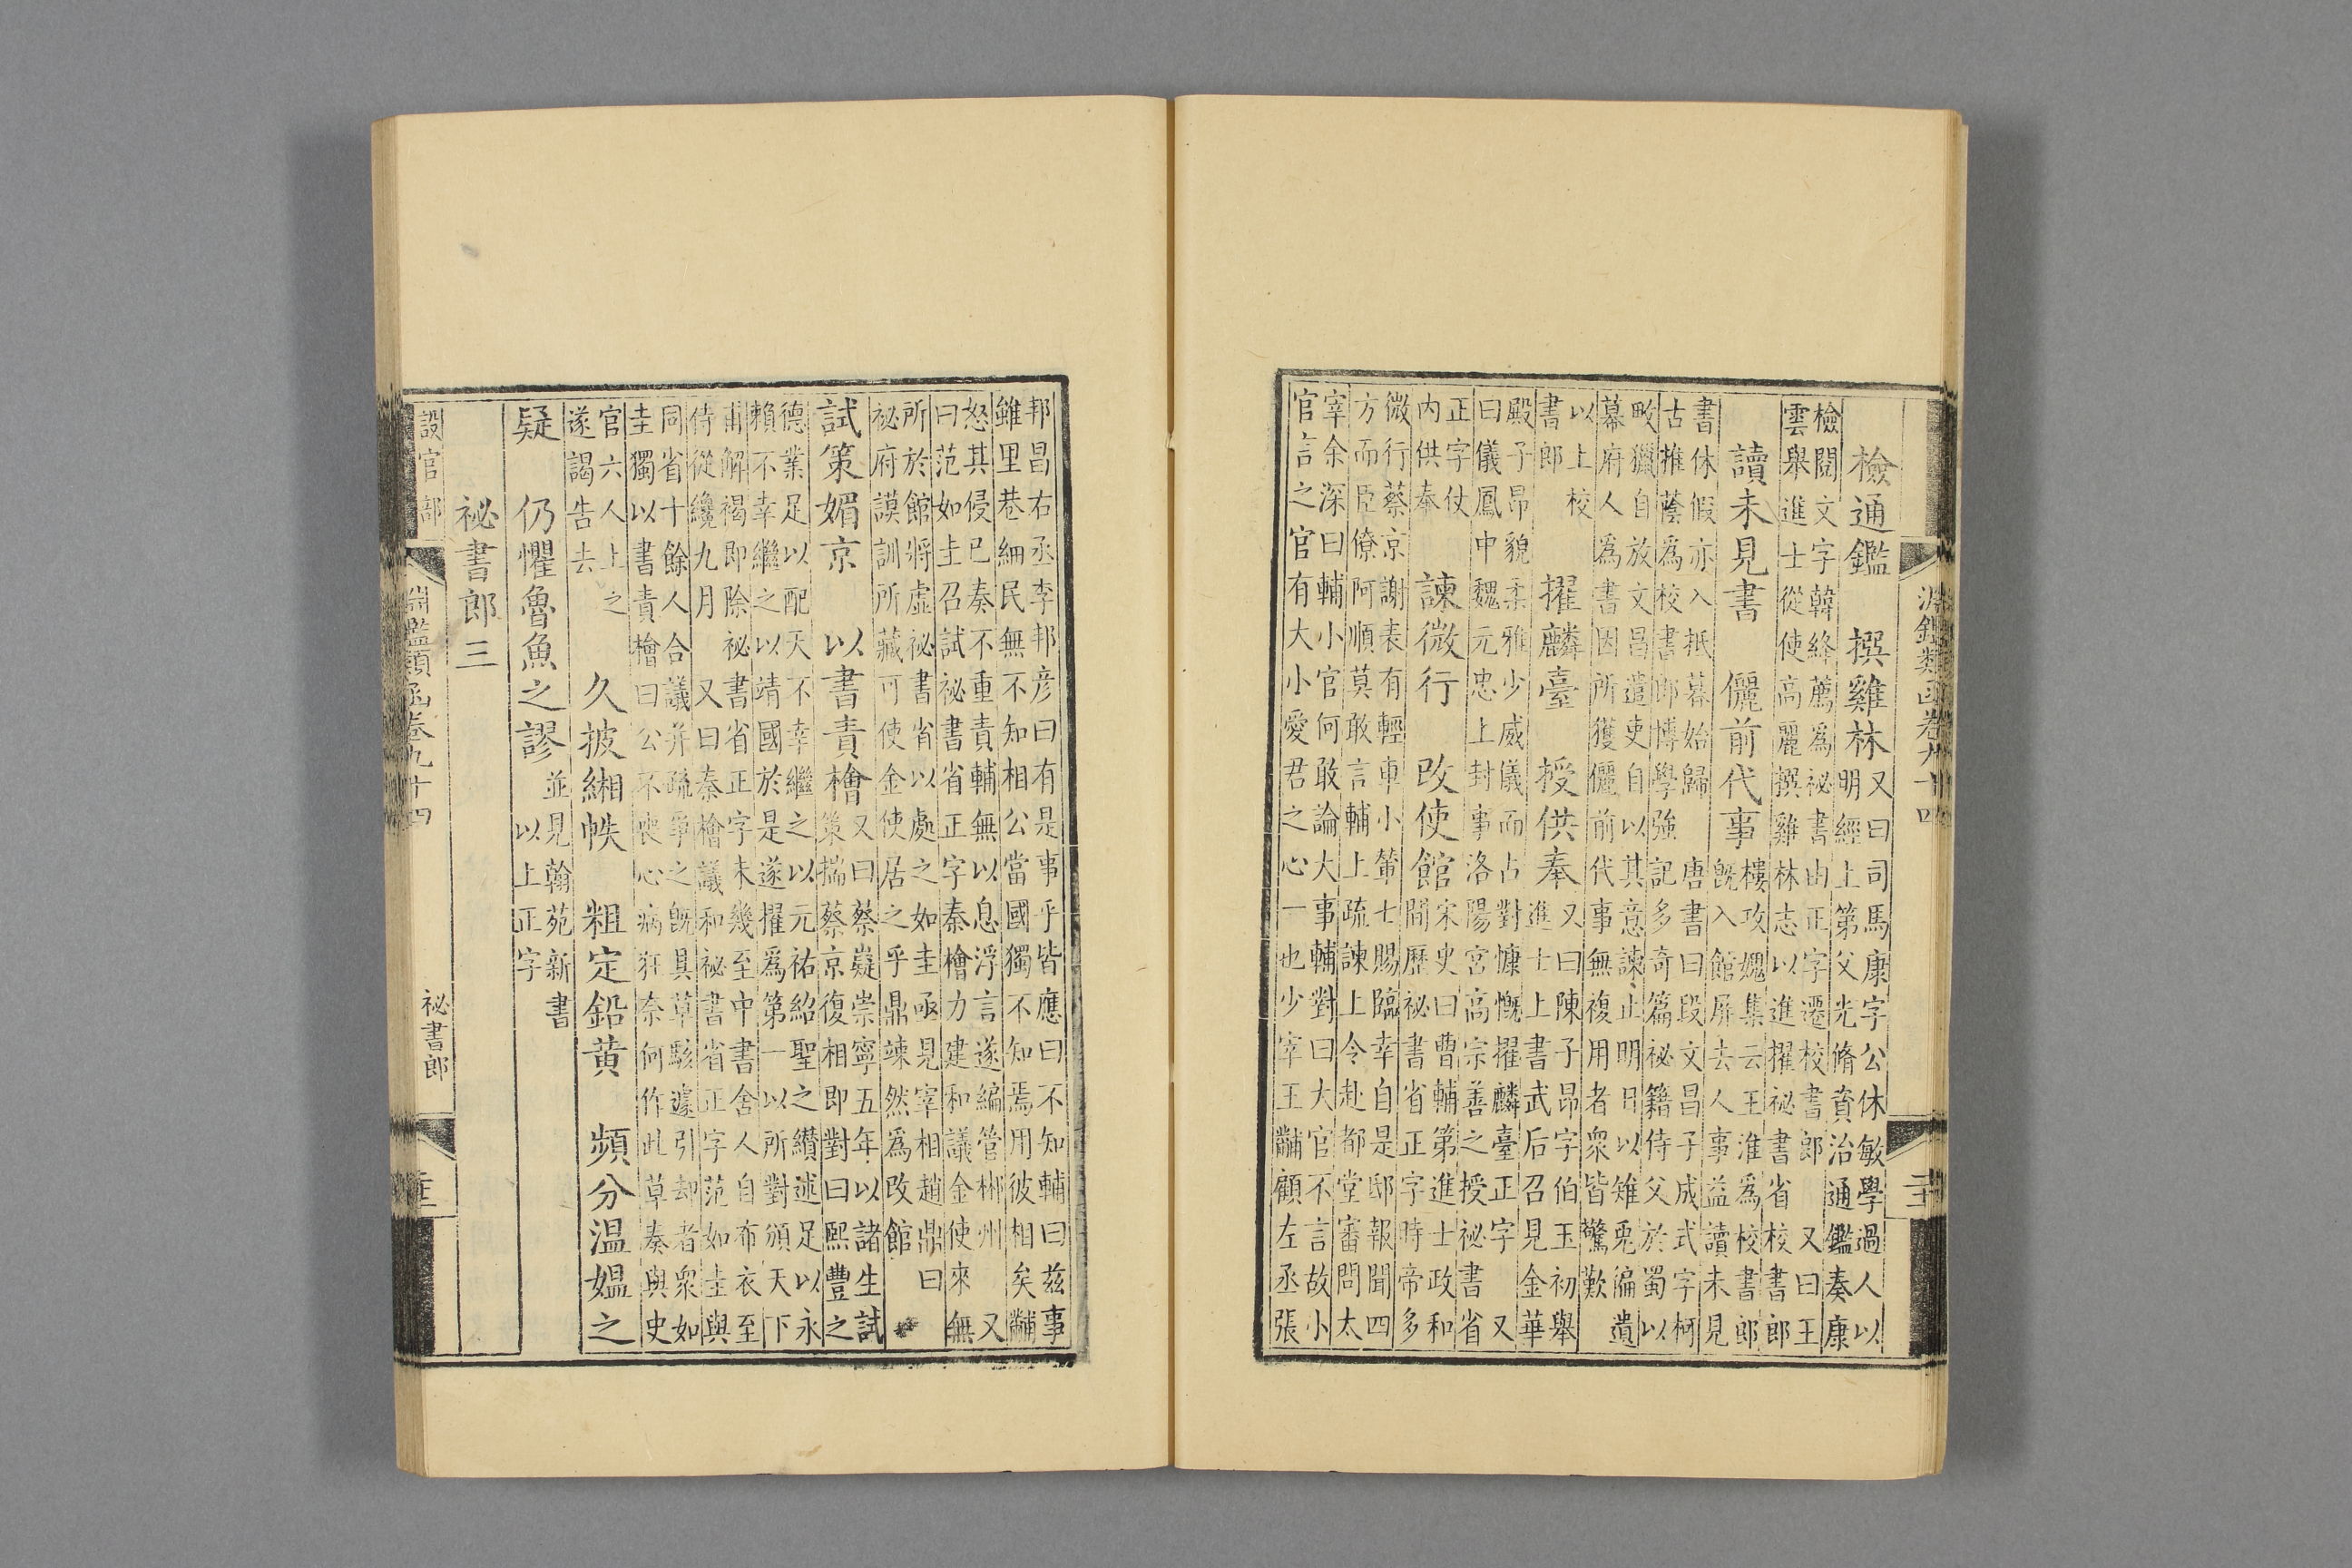 淵鑑類函卷九十四
檢通鑑　撰雞林
又曰司馬康字公休敏學過人以
明經上第父光脩資治通鑑奏康
檢閱文字韓絳薦為祕書由正字遷校書郎　又曰王
雲舉進士從使高麗撰雞林志以進擢祕書省校書郎
讀未見書　儷前代事
樓攻媿集云王淮為校書郎
既入館屏去人事益讀未見
書休假亦入抵暮始歸　唐書曰段文昌子成式字柯
古推蔭為校書郎博學強記多奇篇祕籍侍父於蜀以
畋獵自放文昌遣吏自以其意諫止明日以雉兎徧遺
幕府人為書因所獲儷前代事無複用者衆皆驚歎
以上校
書郎
擢麟臺　授供奉
又曰陳子昂字伯玉初舉
進士上書武后召見金華
殿子昂貌柔雅少威儀而占對慷慨擢麟臺正字　又
曰儀鳳中魏元忠上封事洛陽宮高宗善之授祕書省
正字仗
內供奉
諫微行　改使館
宋史曰曹輔第進士政和
間歷祕書省正字時帝多
微行蔡京謝表有輕車小輦七賜臨幸自是邸報聞四
方而臣僚阿順莫敢言輔上疏諫上令赴都堂審問太
宰余深曰輔小官何敢論大事輔對曰大官不言故小
官言之官有大小愛君之心一也少宰王黼顧左丞張
邦昌右丞李邦彦曰有是事乎皆應曰不知輔曰兹事
雖里巷細民無不知相公當國獨不知焉用彼相矣黼
怒其侵已奏不重責輔無以息浮言遂編管郴州　又
曰范如圭召試祕書省正字秦檜力建和議金使來無
所於館將虛祕書省以處之如圭亟見宰相趙鼎曰
祕府謨訓所藏可使金使居之乎鼎竦然為改館
試策媚京　以書責檜
又曰蔡嶷崇寧五年以諸生試
策揣蔡京復相即對曰熙豐之
德業足以配天不幸繼之以元祐紹聖之纉述足以永
賴不幸繼之以靖國於是遂擢為第一以所對頒天下
甫解褐即除祕書省正字未幾至中書舍人自布衣至
侍從纔九月　又曰秦檜議和祕書省正字范如圭與
同省十餘人合議并疏爭之既具草駭遽引却者衆如
圭獨以書責檜曰公不喪心病狂奈何作此草奏與史
官六人上之
遂謁告去
久披緗帙　粗定鉛黄　頻分温媪之
疑　仍懼魯魚之謬
並見翰苑新書
以上正字
祕書郎三
設官部　淵鑑類函卷九十四　祕書郎